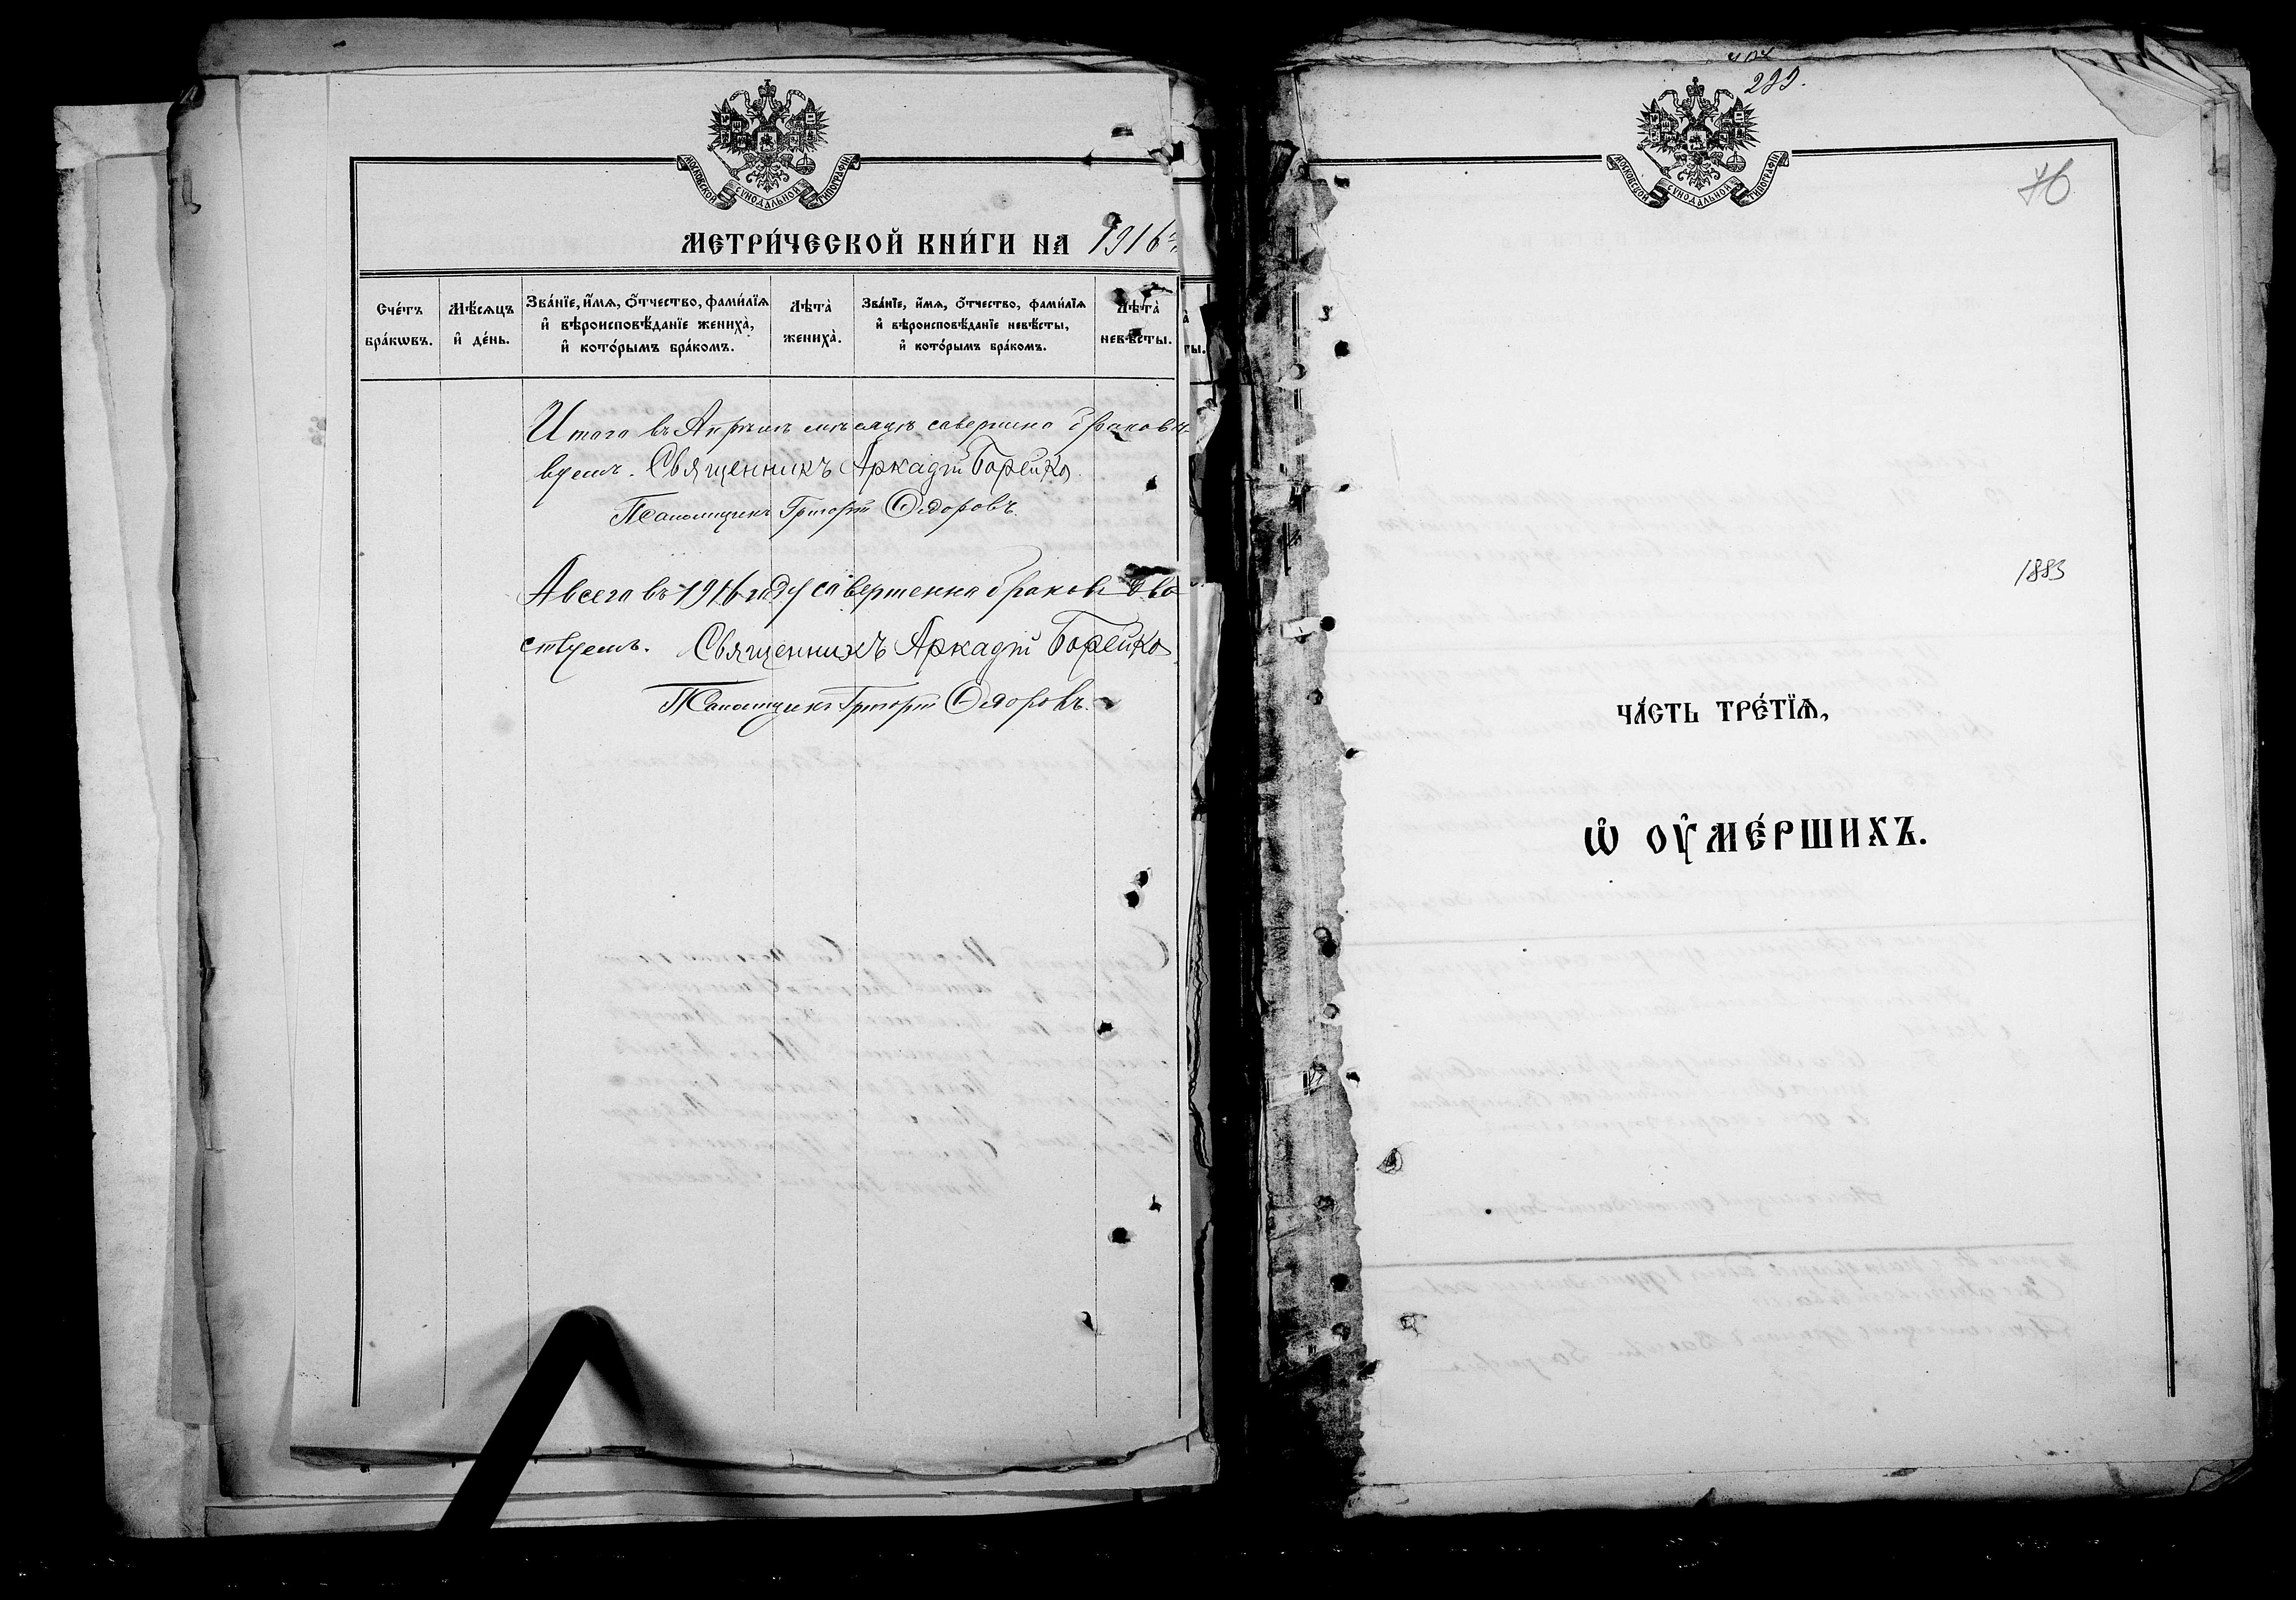 МОСКОВСКОЙ СѴНОДАЛЬНОЙ ТИПОГРАФІИ
МЕТРИ́ЧЕСКОЙ КНИ́ГИ НА 1916 г.
Сче́тъ бра́кѡвъ.
Мѣ́сѧцъ и҆ де́нь.
Зва́нїе, и҆́мѧ, ѻ҆́тчество, фами́лїѧ
и҆ вѣроисповѣ́данїе жениха̀,
и҆ кото́рымъ бра́комъ.
Лѣта̀ жениха̀.
Зва́нїе, и҆́мѧ, ѻ҆́тчество, фами́лїѧ
и҆ вѣроисповѣ́данїе невѣ́сты,
и҆ кото́рымъ бра́комъ.
Лѣта̀ невѣ́сты.
Итого въ Апрѣлѣ мѣсяцѣ браковъ
Священникъ Аркадій Борейко
Псаломщикъ Григорій Ѳедоровъ.
А всего въ 1916 году совершенно браковъ
Священникъ Аркадій Борейко
Псаломщикъ Григорій Ѳедоровъ.
299.
МОСКОВСКОЙ СѴНОДАЛЬНОЙ ТИПОГРАФІИ
76
1883
ЧА́СТЬ ТРЕ́ТЇѦ,
Ѡ҆ ОУ҆МЕ́РШИХЪ.